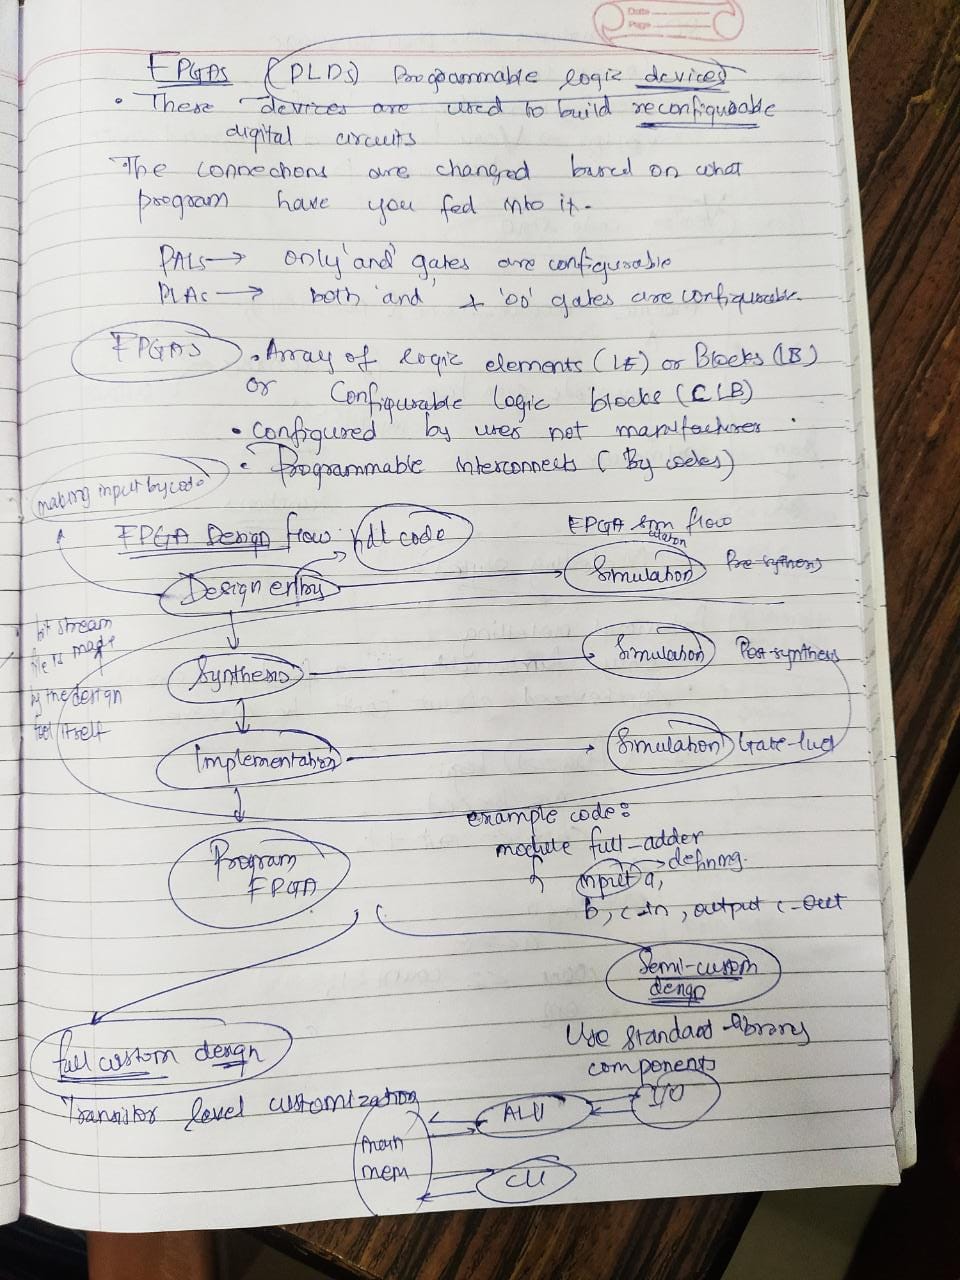 Date
Page
FPGAs (PLDs) Programmable logic devices
• These devices are used to build reconfigurable
digital circuits
• The connections are changed based on what
program have you fed into it.
PALs → only 'and' gates are configurable
PLAs → both 'and' + 'oo' gates are configurable.
FPGAs • Array of logic elements (LE) or Blocks (LB)
or Configurable Logic blocks (CLB)
• configured by user not manufacturer
• Programmable interconnects (By codes)
making input by code
FPGA Design flow hdl code FPGA flow
Design entry → Simulation Pre-synthesis
bit stream
file is made
by the design
tool itself
Synthesis → Simulation Post-synthesis
Implementation → Simulation Gate-level
Program
FPGA
example code:
module full-adder
input a, → defining.
b, c-in, output c-out
Semi-custom
design
Use standard library
components
full custom design
Transistor level customization
main
mem
ALU
I/O
CU